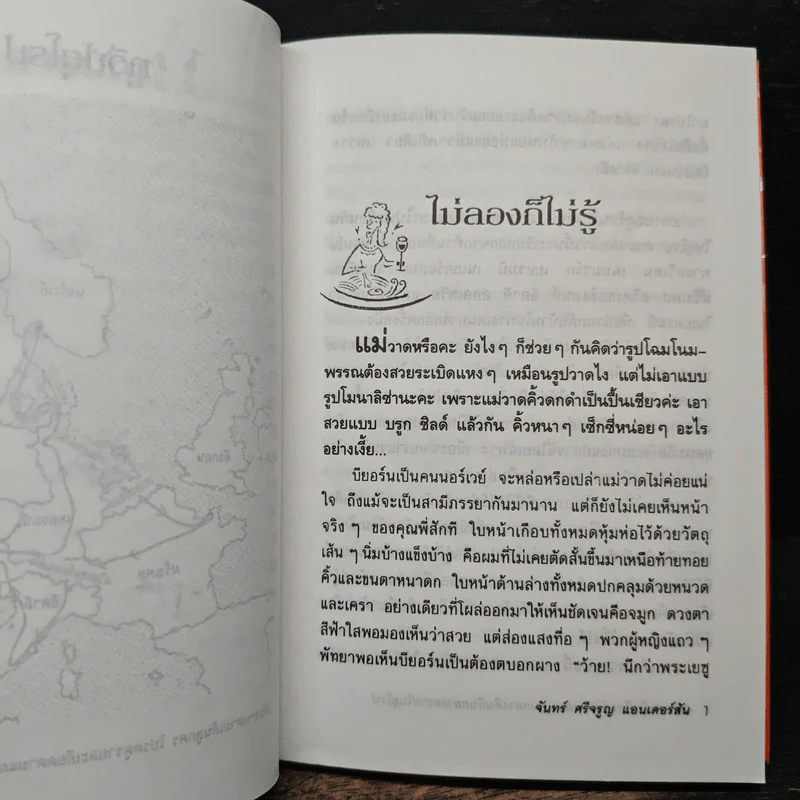 ไม่ลองก็ไม่รู้
แม่วาดหรือคะ ยังไงๆ ก็ช่วยๆ กันคิดว่ารูปโฉมโนม-
พรรณต้องสวยระเบิดแหงๆ เหมือนรูปวาดไง แต่ไม่เอาแบบ
รูปโมนาลิซ่านะคะ เพราะแม่วาดคิ้วดกดำเป็นปื้นเชียวค่ะ เอา
สวยแบบ บรูก ชิลด์ แล้วกัน คิ้วหนาๆ เซ็กซี่หน่อยๆ อะไร
อย่างเงี้ย...
บียอร์นเป็นคนนอร์เวย์ จะหล่อหรือเปล่าแม่วาดไม่ค่อยแน่
ใจ ถึงแม้จะเป็นสามีภรรยากันมานาน แต่ก็ยังไม่เคยเห็นหน้า
จริงๆ ของคุณพี่สักที ใบหน้าเกือบทั้งหมดหุ้มห่อไว้ด้วยวัตถุ
เส้นๆ นิ่มบ้างแข็งบ้าง คือผมที่ไม่เคยตัดสั้นขึ้นมาเหนือท้ายทอย
คิ้วและขนตาหนาดก ใบหน้าด้านล่างทั้งหมดปกคลุมด้วยหนวด
และเครา อย่างเดียวที่โผล่ออกมาให้เห็นชัดเจนคือจมูก ดวงตา
สีฟ้าใสพอมองเห็นว่าสวย แต่ส่องแสงทื่อๆ พวกผู้หญิงแถวๆ
พัทยาพอเห็นบียอร์นเป็นต้องตบอกผาง "ว้าย! นึกว่าพระเยซู
จันทร์ ศรีจรูญ แอนเดอร์สัน 1